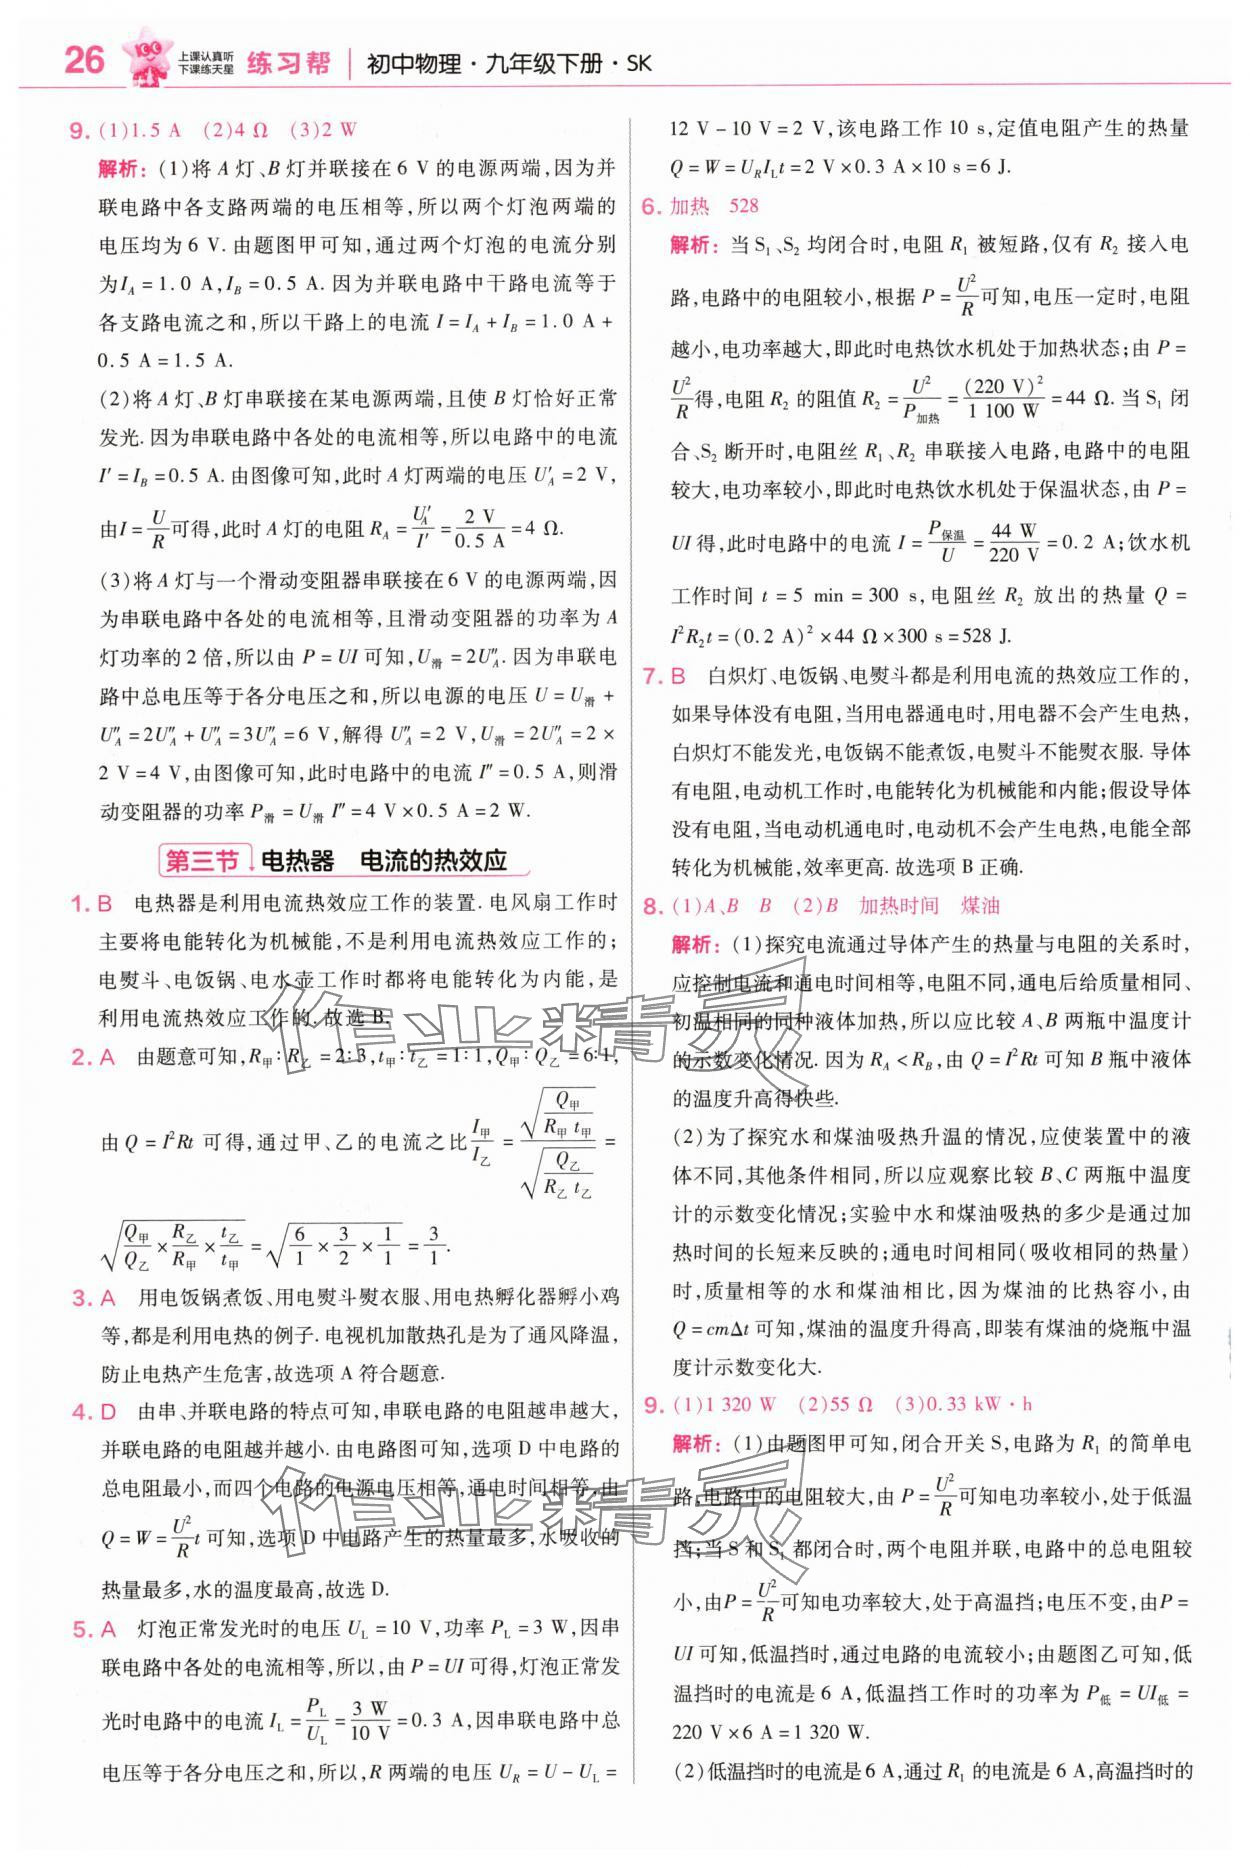 26 上课认真听 下课练天星 练习帮 初中物理·九年级下册·SK
9. (1)1.5 A (2)4 Ω (3)2 W
解析: (1)将 A 灯、B 灯并联接在 6 V 的电源两端,因为并
联电路中各支路两端的电压相等,所以两个灯泡两端的
电压均为 6 V. 由题图甲可知,通过两个灯泡的电流分别
为I_A = 1.0 A,I_B = 0.5 A. 因为并联电路中干路电流等于
各支路电流之和,所以干路上的电流 I = I_A + I_B = 1.0 A +
0.5 A = 1.5 A.
(2)将 A 灯、B 灯串联接在某电源两端,且使 B 灯恰好正常
发光. 因为串联电路中各处的电流相等,所以电路中的电流
I′ = I_B = 0.5 A. 由图像可知,此时 A 灯两端的电压 U′_A = 2 V,
由I = U/R 可得,此时 A 灯的电阻 R_A = U′_A/I′ = 2 V/0.5 A = 4 Ω.
(3)将 A 灯与一个滑动变阻器串联接在 6 V 的电源两端,因
为串联电路中各处的电流相等,且滑动变阻器的功率为 A
灯功率的 2 倍,所以由 P = UI 可知,U滑 = 2U″_A. 因为串联电
路中总电压等于各分电压之和,所以电源的电压 U = U滑 +
U″_A = 2U″_A + U″_A = 3U″_A = 6 V,解得 U″_A = 2 V,U滑 = 2U″_A = 2 ×
2 V = 4 V,由图像可知,此时电路中的电流 I″ = 0.5 A,则滑
动变阻器的功率 P滑 = U滑 I″ = 4 V × 0.5 A = 2 W.
第三节 电热器 电流的热效应
1. B 电热器是利用电流热效应工作的装置. 电风扇工作时
主要将电能转化为机械能,不是利用电流热效应工作的;
电熨斗、电饭锅、电水壶工作时都将电能转化为内能,是
利用电流热效应工作的. 故选 B.
2. A 由题意可知,R甲∶R乙 = 2∶3,t甲∶t乙 = 1∶1,Q甲∶Q乙 = 6∶1,
由 Q = I²Rt 可得,通过甲、乙的电流之比 I甲/I乙 = √(Q甲/(R甲 t甲)) / √(Q乙/(R乙 t乙)) =
√(Q甲/Q乙 × R乙/R甲 × t乙/t甲) = √(6/1 × 3/2 × 1/1) = 3/1.
3. A 用电饭锅煮饭、用电熨斗熨衣服、用电热孵化器孵小鸡
等,都是利用电热的例子. 电视机加散热孔是为了通风降温,
防止电热产生危害,故选项 A 符合题意.
4. D 由串、并联电路的特点可知,串联电路的电阻越串越大,
并联电路的电阻越并越小. 由电路图可知,选项 D 中电路的
总电阻最小,而四个电路的电源电压相等,通电时间相等,由
Q = W = U²/R t 可知,选项 D 中电路产生的热量最多,水吸收的
热量最多,水的温度最高,故选 D.
5. A 灯泡正常发光时的电压 U_L = 10 V,功率 P_L = 3 W,因串
联电路中各处的电流相等,所以,由 P = UI 可得,灯泡正常发
光时电路中的电流 I_L = P_L/U_L = 3 W/10 V = 0.3 A,因串联电路中总
电压等于各分电压之和,所以,R 两端的电压 U_R = U - U_L =
12 V - 10 V = 2 V,该电路工作 10 s,定值电阻产生的热量
Q = W = U_R I_L t = 2 V × 0.3 A × 10 s = 6 J.
6. 加热 528
解析: 当 S₁、S₂ 均闭合时,电阻 R₁ 被短路,仅有 R₂ 接入电
路,电路中的电阻较小,根据 P = U²/R 可知,电压一定时,电阻
越小,电功率越大,即此时电热饮水机处于加热状态;由 P =
U²/R 得,电阻 R₂ 的阻值 R₂ = U²/P加热 = (220 V)²/1 100 W = 44 Ω. 当 S₁ 闭
合、S₂ 断开时,电阻丝 R₁、R₂ 串联接入电路,电路中的电阻
较大,电功率较小,即此时电热饮水机处于保温状态,由 P =
UI 得,此时电路中的电流 I = P保温/U = 44 W/220 V = 0.2 A;饮水机
工作时间 t = 5 min = 300 s,电阻丝 R₂ 放出的热量 Q =
I²R₂t = (0.2 A)² × 44 Ω × 300 s = 528 J.
7. B 白炽灯、电饭锅、电熨斗都是利用电流的热效应工作的,
如果导体没有电阻,当用电器通电时,用电器不会产生电热,
白炽灯不能发光,电饭锅不能煮饭,电熨斗不能熨衣服. 导体
有电阻,电动机工作时,电能转化为机械能和内能;假设导体
没有电阻,当电动机通电时,电动机不会产生电热,电能全部
转化为机械能,效率更高. 故选项 B 正确.
8. (1)A、B B (2)B 加热时间 煤油
解析: (1)探究电流通过导体产生的热量与电阻的关系时,
应控制电流和通电时间相等,电阻不同,通电后给质量相同、
初温相同的同种液体加热,所以应比较 A、B 两瓶中温度计
的示数变化情况. 因为 R_A < R_B,由 Q = I²Rt 可知 B 瓶中液体
的温度升高得快些.
(2)为了探究水和煤油吸热升温的情况,应使装置中的液
体不同,其他条件相同,所以应观察比较 B、C 两瓶中温度
计的示数变化情况;实验中水和煤油吸热的多少是通过加
热时间的长短来反映的;通电时间相同(吸收相同的热量)
时,质量相等的水和煤油相比,因为煤油的比热容小,由
Q = cmΔt 可知,煤油的温度升得高,即装有煤油的烧瓶中温
度计示数变化大.
9. (1)1 320 W (2)55 Ω (3)0.33 kW·h
解析: (1)由题图甲可知,闭合开关 S,电路为 R₁ 的简单电
路,电路中的电阻较大,由 P = U²/R 可知电功率较小,处于低温
挡;当 S 和 S₁ 都闭合时,两个电阻并联,电路中的总电阻较
小,由P = U²/R 可知电功率较大,处于高温挡;电压不变,由P =
UI 可知,低温挡时,通过电路的电流较小;由题图乙可知,低
温挡时的电流是 6 A,低温挡工作时的功率为 P低 = UI低 =
220 V × 6 A = 1 320 W.
(2)低温挡时的电流是 6 A,通过 R₁ 的电流是 6 A,高温挡时的
作业精灵
作业精灵